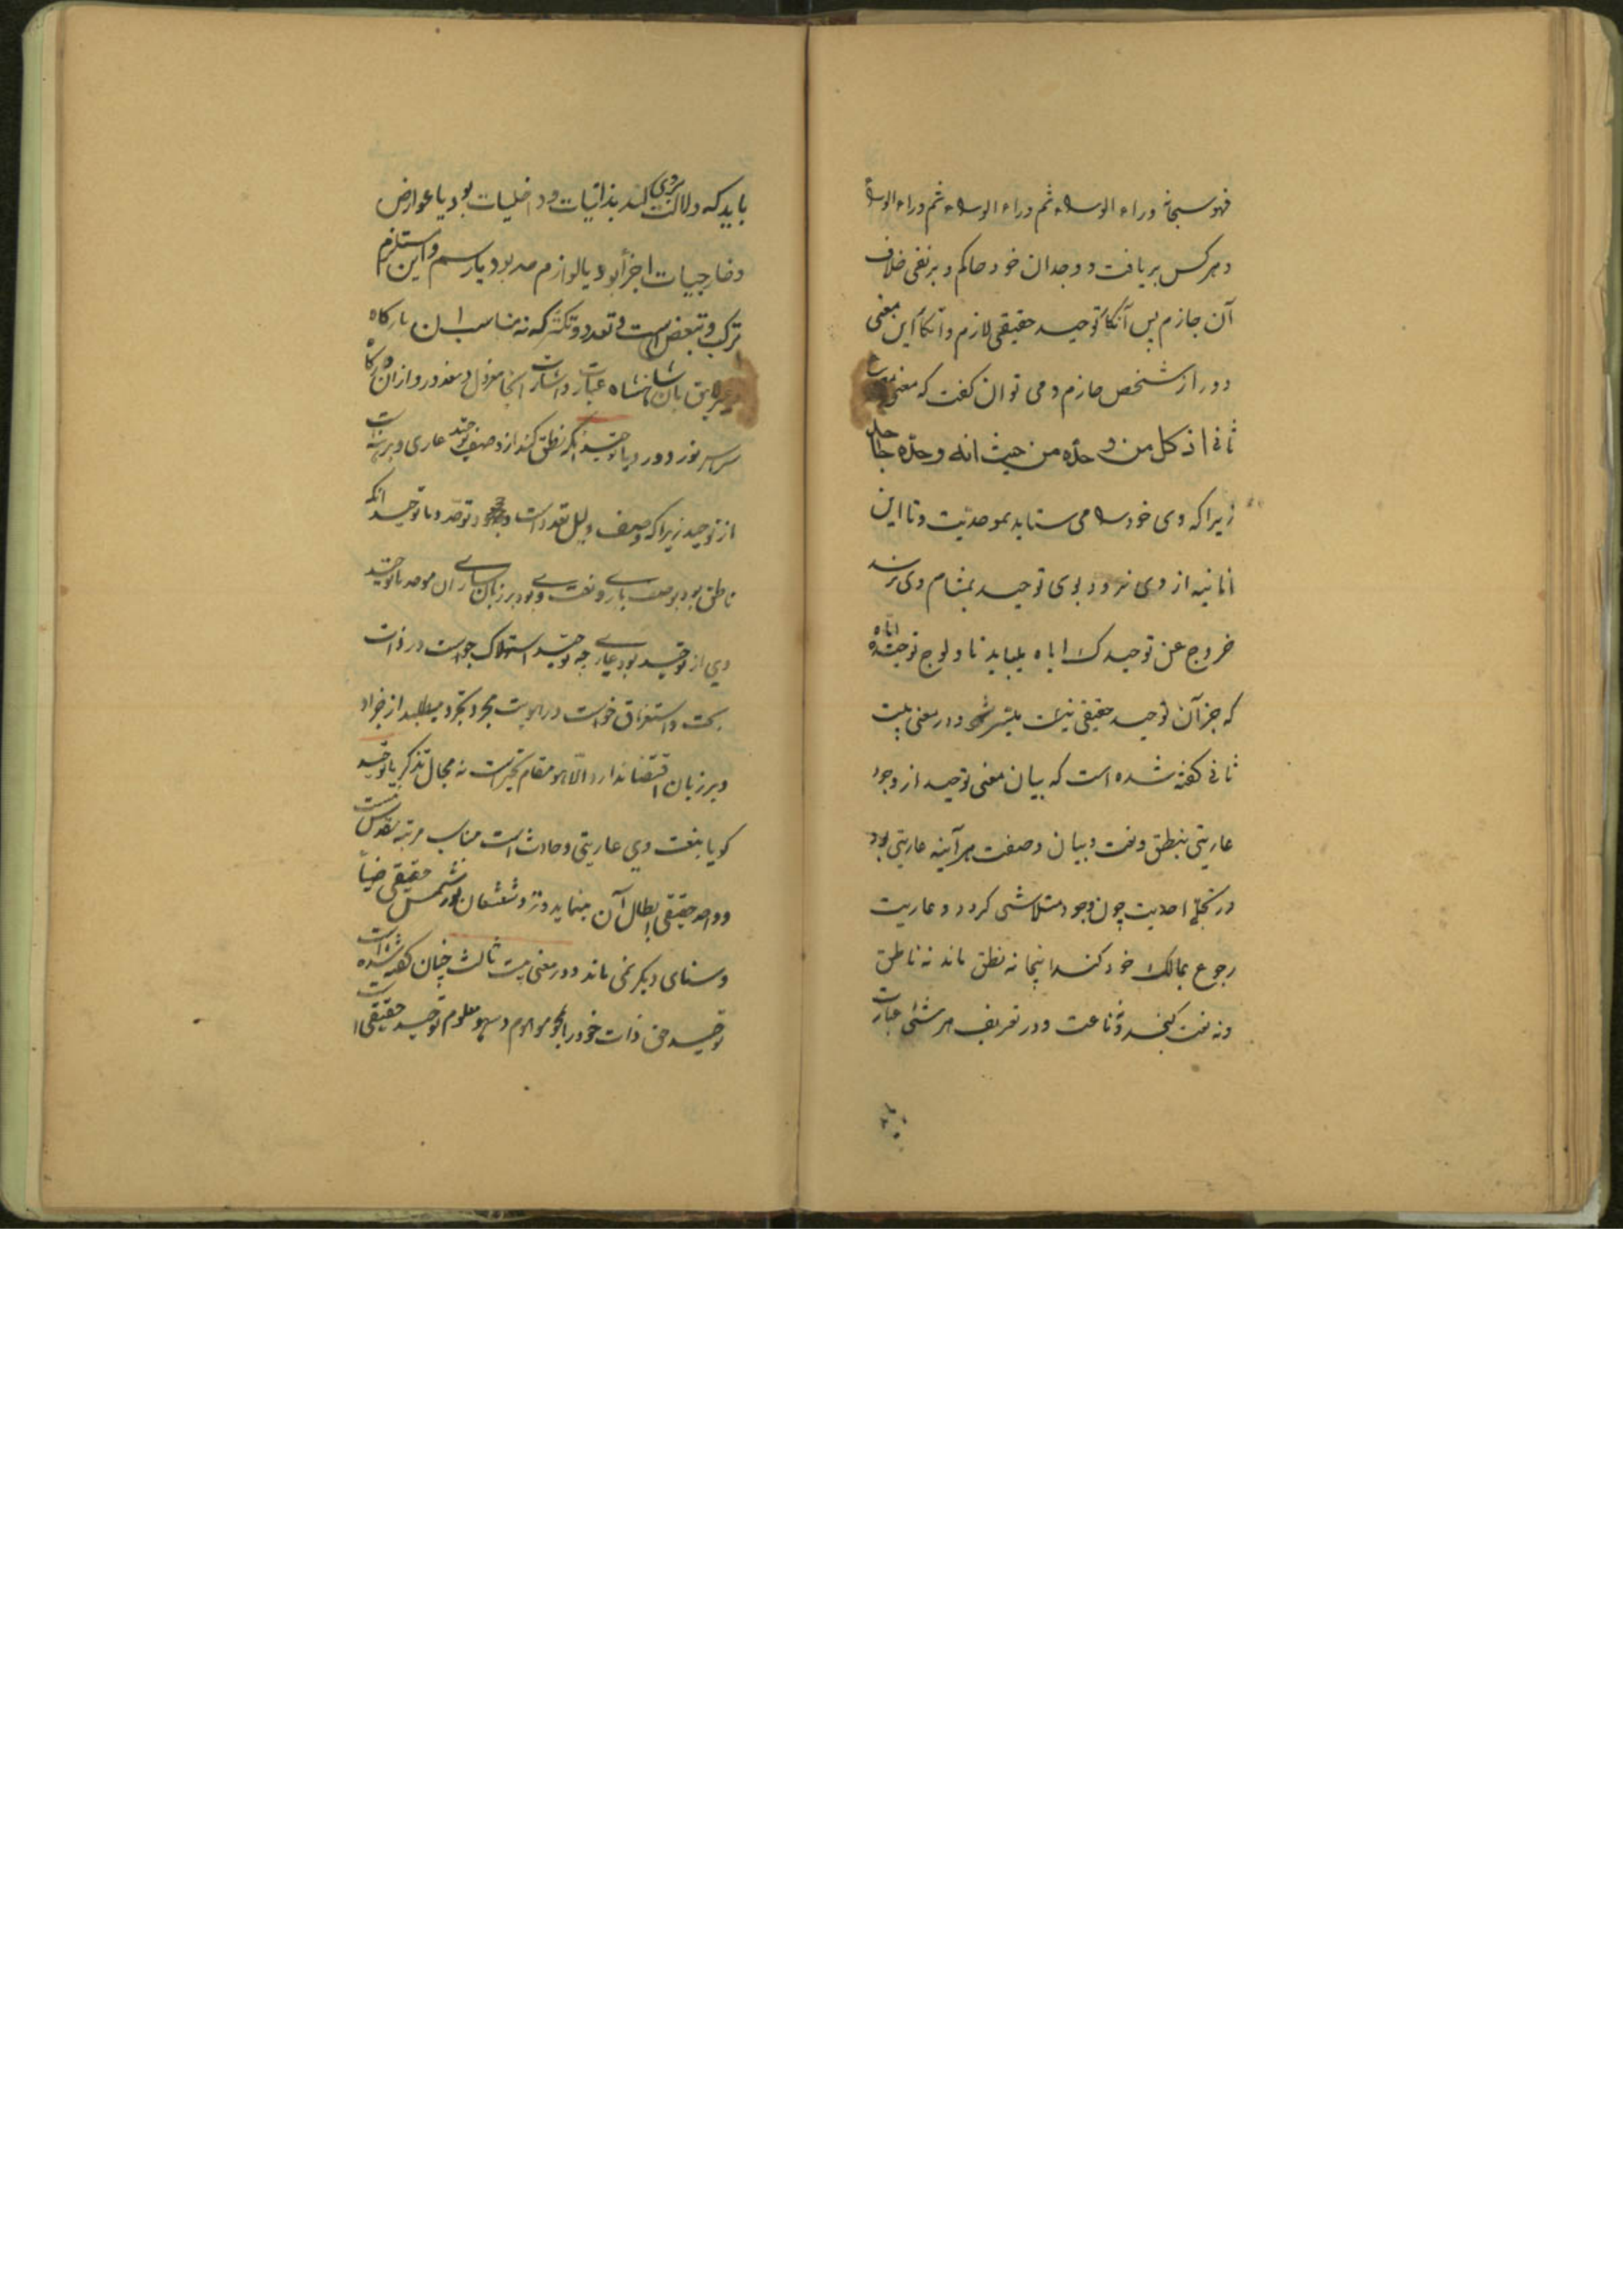 فهو سبحانه وراء الوراء ثم وراء الوراء ثم وراء الوراء
و هرکس بر یافت و وجدان خود حاکم و بر نفی خلاف
آن جازم پس آنگاه توحید حقیقی لازم و آنگاه این معنی
دور از شخص جازم و می توان گفت که معنی بیت
ثانی اذ کل من وحده من حیث انه وحده جاحد
زیرا که وی خود را می ستاید بموحدیت و تا این
انانیه از وی نرود بوی توحید بمشام وی نرسد
خروج عن توحیدک ایاه بباید تا ولوج توحیده ایاه
که جز آن توحید حقیقی نیست میسر شود و در معنی بیت
ثانی گفته شده است که بیان معنی توحید از وجود
عاریتی بنطق و نعت و بیان و صفت هر آینه عاریتی بود
در تجلی احدیت چون وجود متلاشی گردد و عاریت
رجوع بمالک خود کند اینجا نه نطق ماند نه ناطق
و نه نعت گنجد و نه ناعت و در تعریف هر شئی عبارت
باید
باید که دلالت بروی کند بذاتیات و داخلیات بود یا عوارض
و خارجیات اجزأ بود یا لوازم حد بود یا رسم و این مستلزم
ترکب و تبعض است و تعدد و تکثر که نه مناسب آن بارگاه
و نه لایق بآن شاهنشاه عبارت و اشارت آنجا معزول و مغدور و از آن درگاه
سراسر نور دور و یا توحید اگر نطق کند از وصف توحید عاری و برهنه است
از توحید زیرا که وصف دلیل تعدد است و توحد و با توحید آنکه
ناطق بود بوصف باری و نعت وی بود بر زبان ساری آن موحد با توحید
وی از توحید بود عاری چه توحید استهلاک خواست در ذات
بحت و استغراق خواست در هویت مجرد تجرد میطلبد از جز او
و بر زبان اقتضا ندارد الا هو مقام تحیر است نه مجال تذکر یا توحید
گویا بنعت وی عاریتی و حادث است مناسب مرتبه تقدس نیست
و واحد حقیقی ابطال آن مینماید و نزد شعشعان نور شمس حقیقی ضیا
و سنای دیگر نمی ماند و در معنی بیت ثالث چنان گفته شده است
توحید حق ذات خود را بمحو موهوم و صحو معلوم توحید حقیقی است